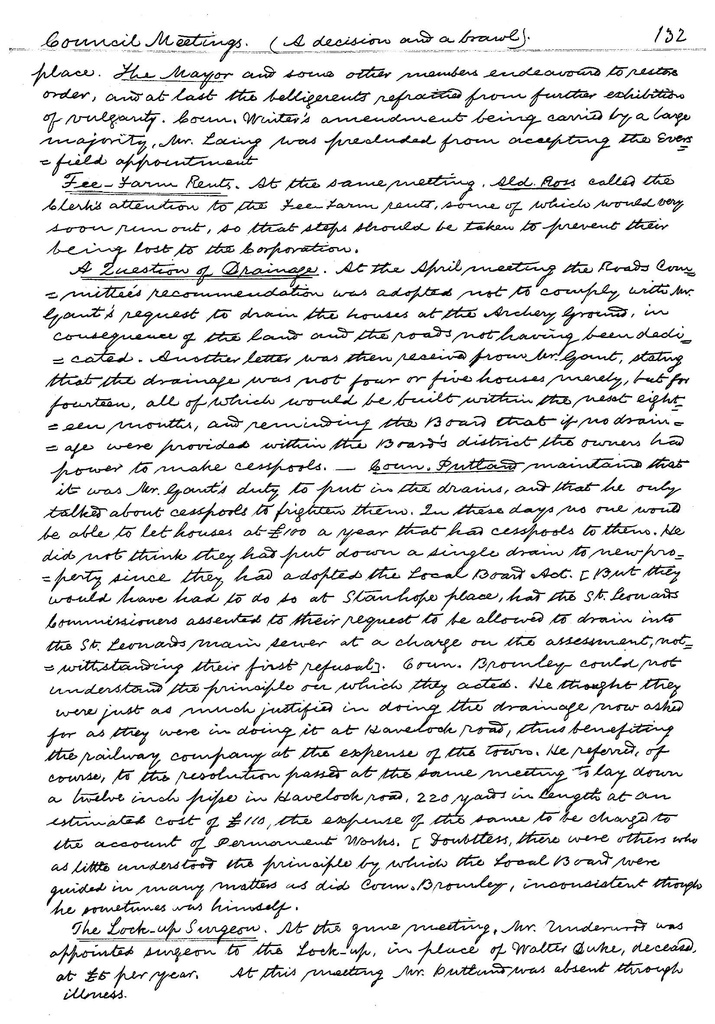 Council Meetings. (A decision and a brawl). 132
place. The Mayor and some other members endeavourd to restore
order, and at last the belligerents refrained from further exhibition
of vulgarity. Coun. Winter's amendment being carried by a large
majority, Mr. Laing was precluded from accepting the Evers=
=field appointment
Fee-Farm Rents. At the same meeting, Ald. Ross called the
Clerk's attention to the Fee-Farm rents, some of which would very
soon run out, so that steps should be taken to prevent their
being lost to the Corporation.
A Question of Drainage. At the April meeting the Roads Com=
=mittee's recommendation was adopted not to comply with Mr.
Gant's request to drain the houses at the Archery Ground, in
consequence of the land and the roads not having been dedi=
=cated. Another letter was then received from Mr. Gant, stating
that the drainage was not four or five houses merely, but for
fourteen, all of which would be built within the next eight=
=een months, and reminding the Board that if no drain=
=age were provided within the Board's district the owners had
power to make cesspools. — Coun. Putland maintaind that
it was Mr. Gant's duty to put in the drains, and that he only
talked about cesspools to frighten them. In these days no one would
be able to let houses at £100 a year that had cesspools to them. He
did not think they had put down a single drain to new pro=
=perty since they had adopted the Local Board Act. [But they
would have had to do so at Stanhope place, had the St. Leonards
Commissioners assented to their request to be allowed to drain into
the St. Leonards main sewer at a charge on the assessment, not=
=withstanding their first refusal]. Coun. Bromley could not
understand the principle on which they acted. He thought they
were just as much justified in doing the drainage now asked
for as they were in doing it at Havelock road, thus benefiting
the railway company at the expense of the town. He referred, of
course, to the resolution passed at the same meeting to lay down
a twelve inch pipe in Havelock road, 220 yards in length at an
estimated cost of £110, the expense of the same to be charged to
the account of Permanent Works. [Doubtless, there were others who
as little understood the principle by which the Local Board were
guided in many matters as did Coun. Bromley, inconsistent though
he sometimes was himself.
The Lock-up Surgeon. At the June meeting, Mr. Underwood was
appointed surgeon to the Lock-up, in place of Walter Duke, deceased,
at £5 per year. At this meeting Mr. Putland was absent through
illness.